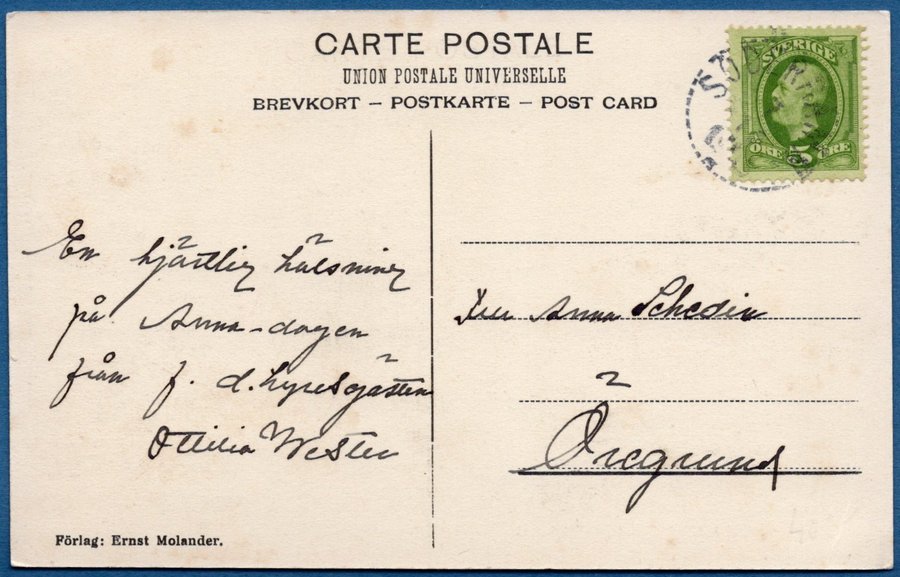 CARTE POSTALE
UNION POSTALE UNIVERSELLE
BREVKORT — POSTKARTE — POST CARD
SVERIGE
ÖRE 5 ÖRE
En hjärtlig hälsning
på Anna-dagen
från f. d. hyresgästen
Ottilia Wester
Fru Anna Schedin
Öregrund
Förlag: Ernst Molander.